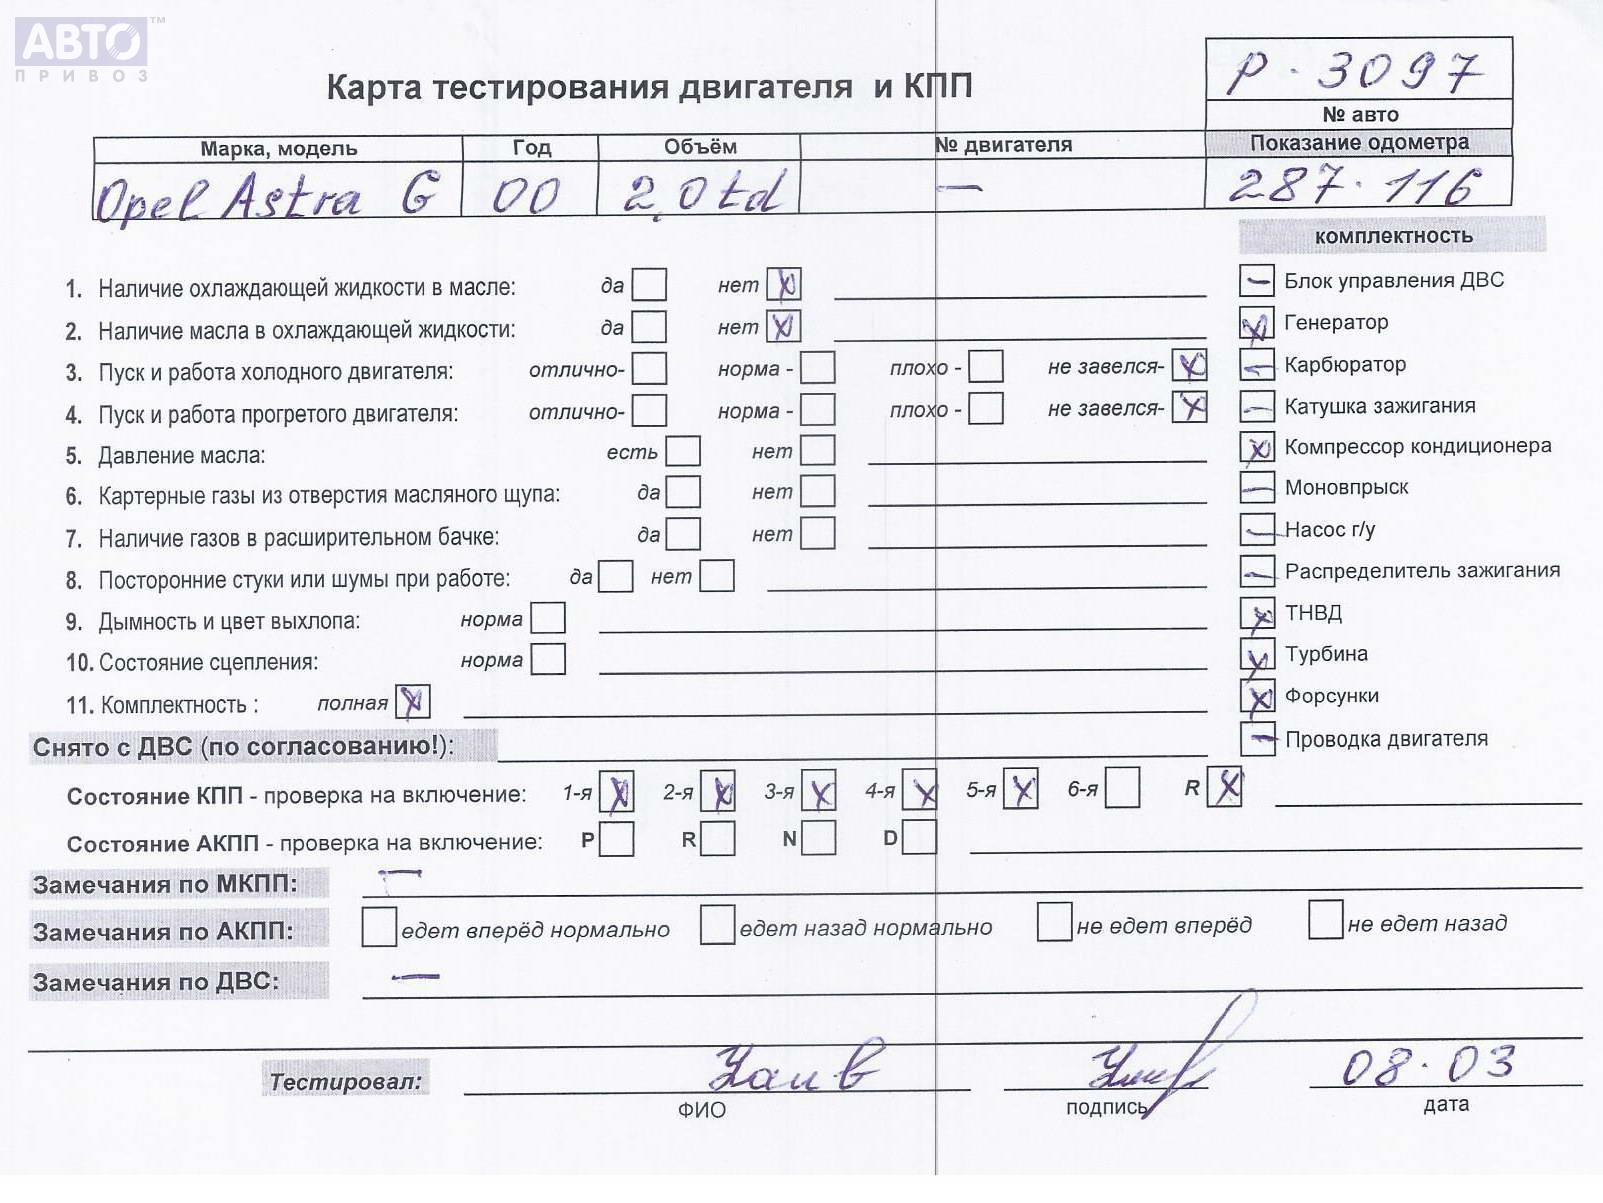 АВТО™
ПРИВОЗ
Карта тестирования двигателя и КПП
Р-3097
№ авто
Марка, модель Год Объём № двигателя Показание одометра
Opel Astra G 00 2,0 td — 287.116
комплектность
1. Наличие охлаждающей жидкости в масле: да нет X
2. Наличие масла в охлаждающей жидкости: да нет X
3. Пуск и работа холодного двигателя: отлично- норма - плохо - не завелся- X
4. Пуск и работа прогретого двигателя: отлично- норма - плохо - не завелся- X
5. Давление масла: есть нет
6. Картерные газы из отверстия масляного щупа: да нет
7. Наличие газов в расширительном бачке: да нет
8. Посторонние стуки или шумы при работе: да нет
9. Дымность и цвет выхлопа: норма
10. Состояние сцепления: норма
11. Комплектность : полная X
— Блок управления ДВС
X Генератор
— Карбюратор
— Катушка зажигания
X Компрессор кондиционера
— Моновпрыск
— Насос г/у
— Распределитель зажигания
X ТНВД
X Турбина
X Форсунки
— Проводка двигателя
Снято с ДВС (по согласованию!):
Состояние КПП - проверка на включение: 1-я X 2-я X 3-я X 4-я X 5-я X 6-я R X
Состояние АКПП - проверка на включение: P R N D
Замечания по МКПП: —
Замечания по АКПП: едет вперёд нормально едет назад нормально не едет вперёд не едет назад
Замечания по ДВС: —
Тестировал: 08.03
ФИО подпись дата